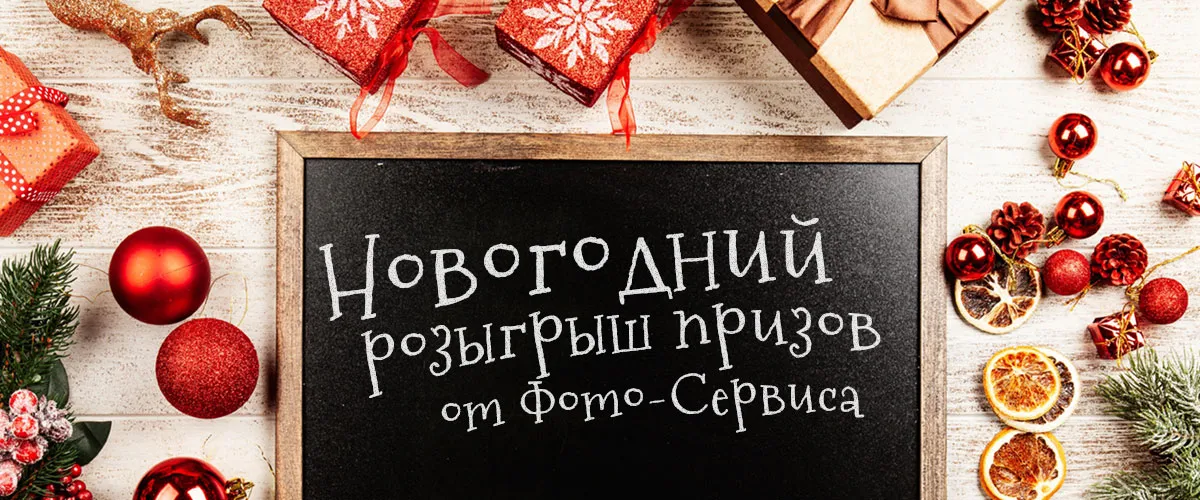 Новогодний
розыгрыш призов
от Фото-Сервиса